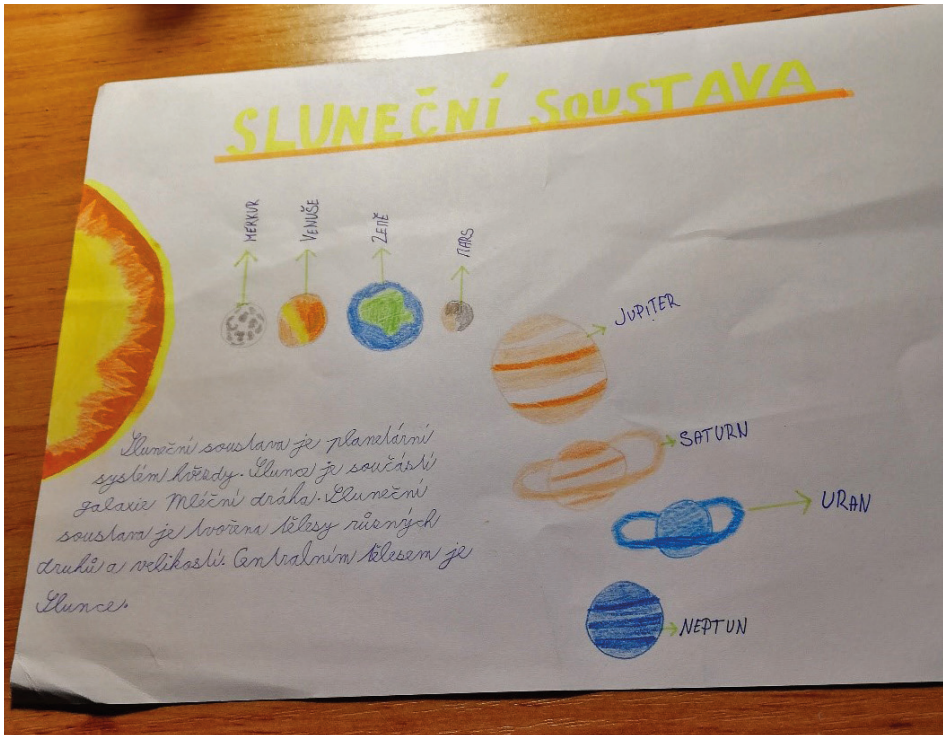 SLUNEČNÍ SOUSTAVA
MERKUR
VENUŠE
ZEMĚ
MARS
JUPITER
SATURN
URAN
NEPTUN
Sluneční soustava je planetární
systém hvězdy. Slunce je součástí
galaxie Mléční dráha. Sluneční
soustava je tvořena tělesy různých
druhů a velikostí. Centralním tělesem je
Slunce.